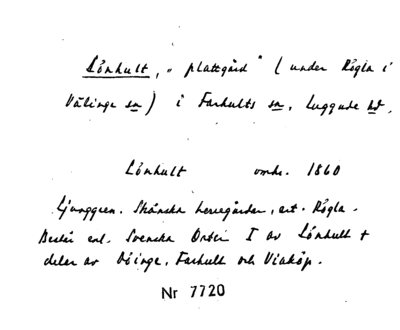 Lönhult, „plattgård" (under Rögla i
Välinge sn) i Farhults sn, Luggude hd.
Lönhult omkr. 1860
Ljunggren. Skånska herregårdar, art. Rögla.
Består enl. Svenska Orter I av Lönhult +
delar av Böinge, Farhult och Viaköp.
Nr 7720